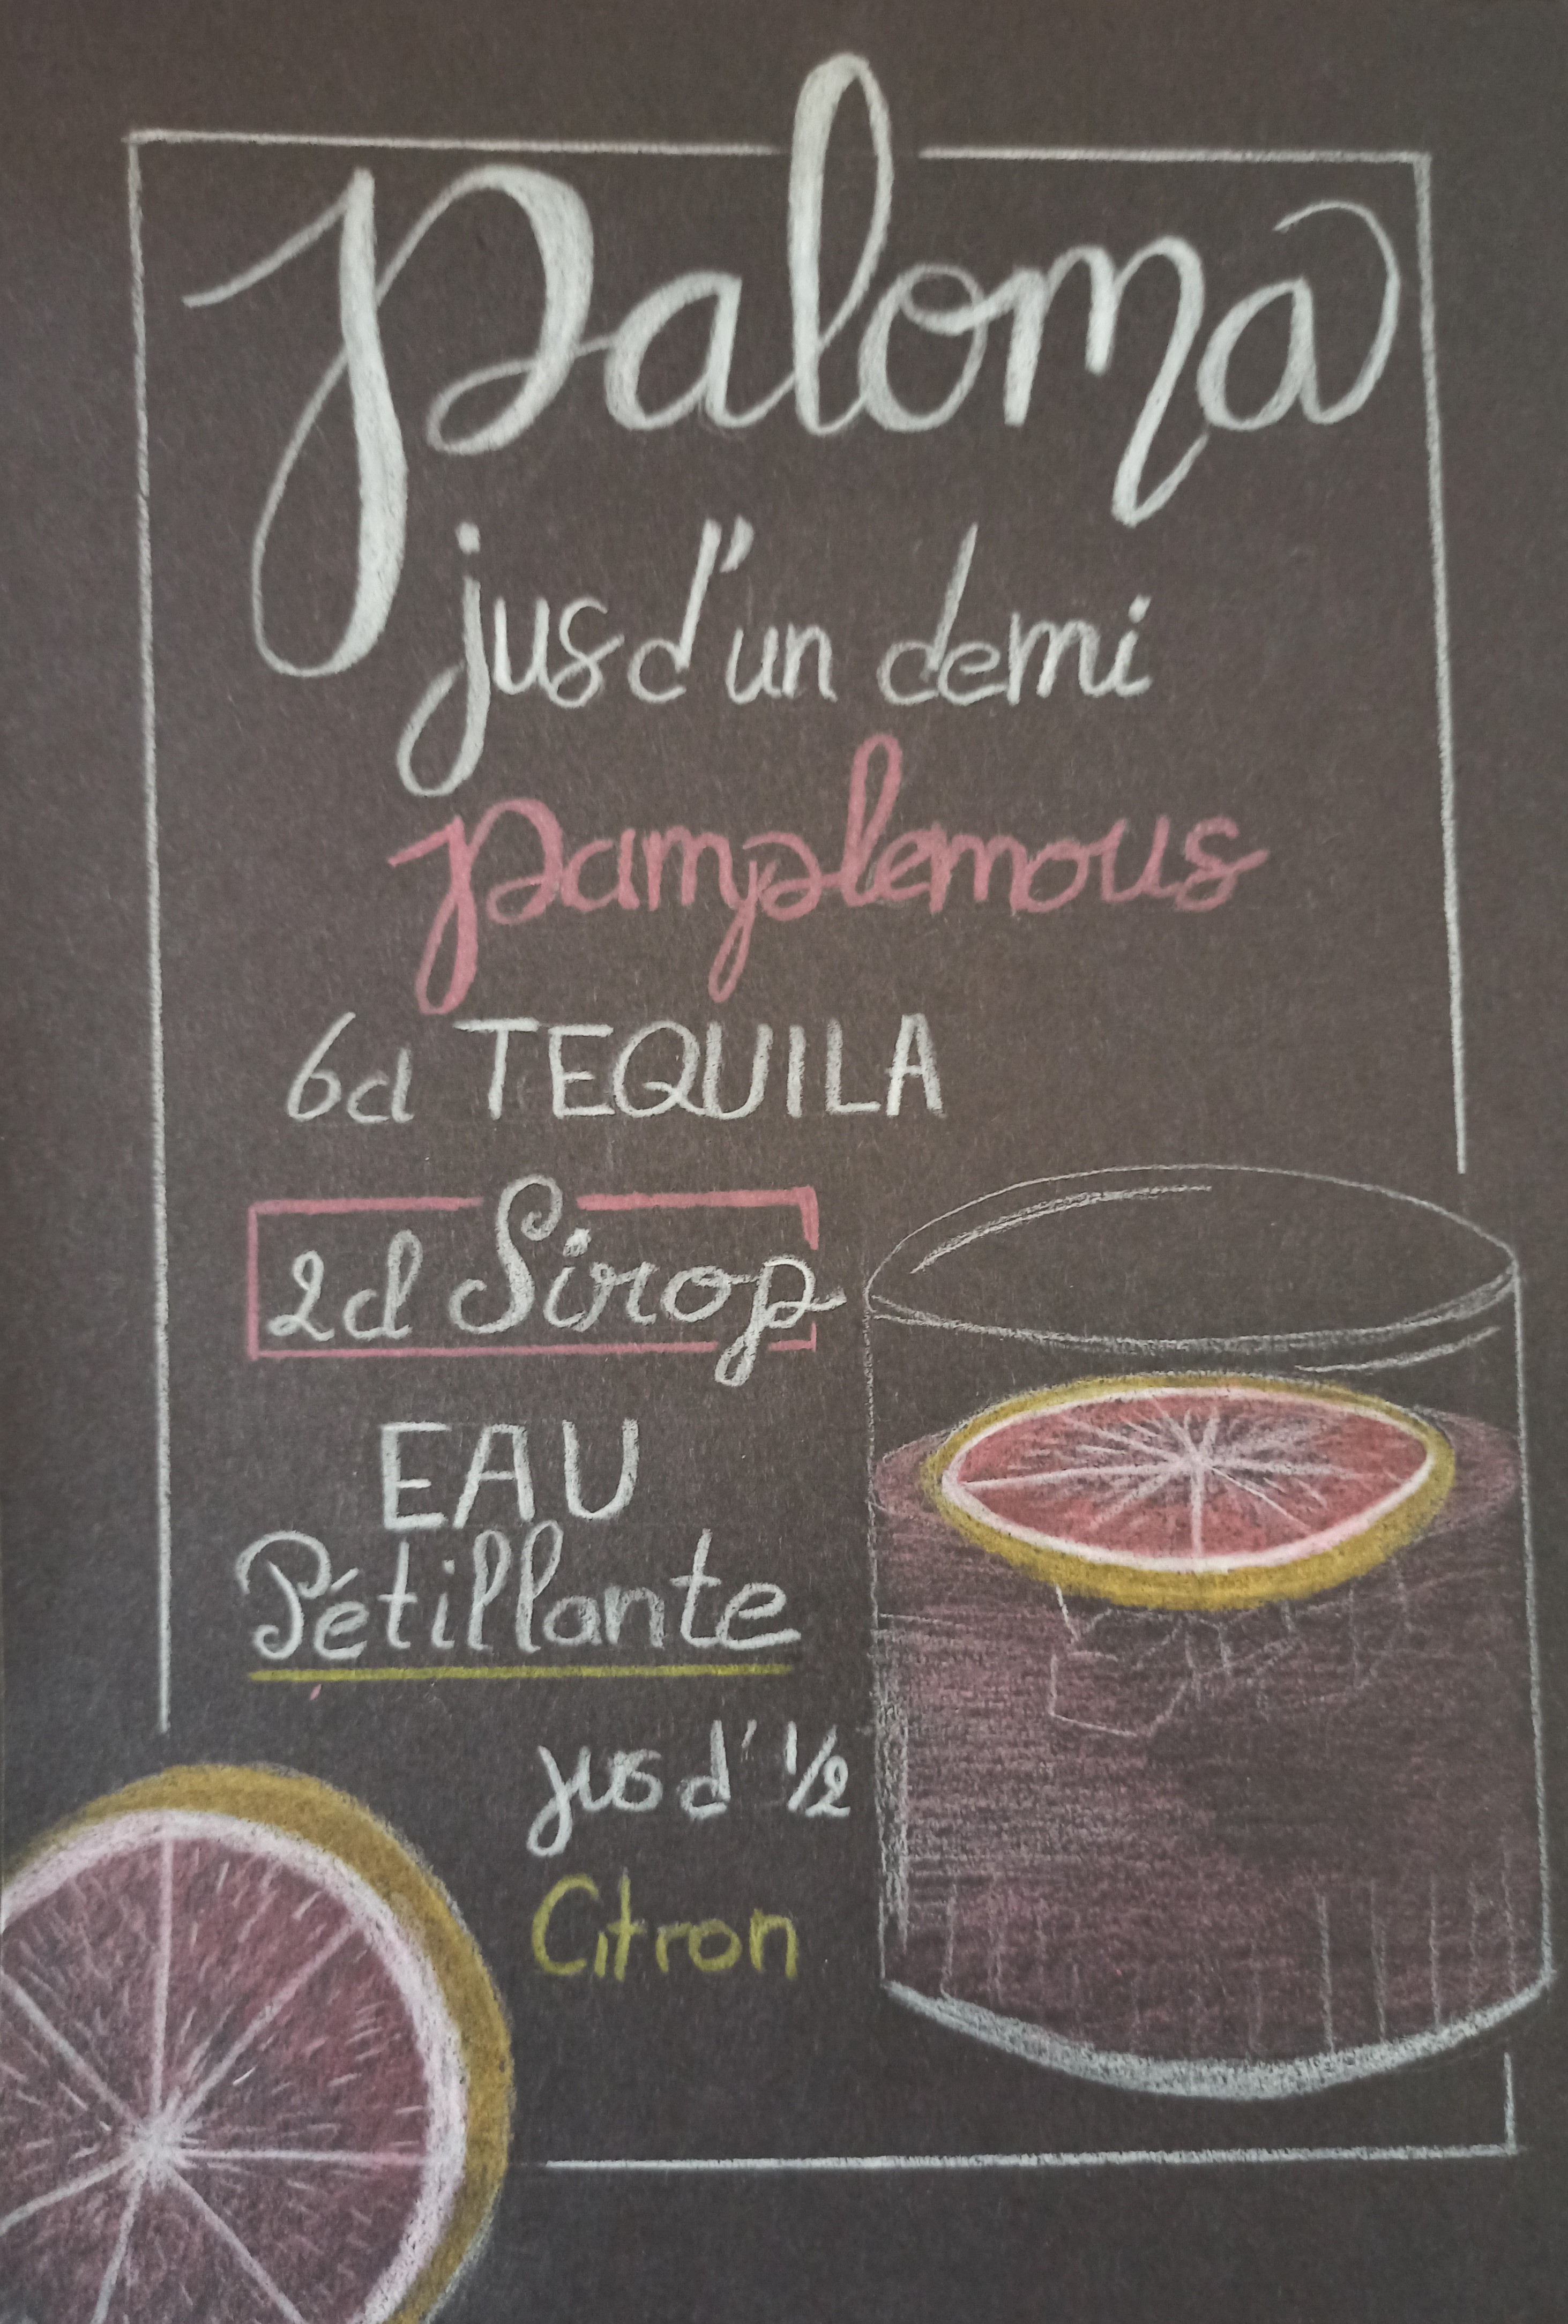 Paloma
jus d'un demi
pamplemous
6cl TEQUILA
2cl Sirop
EAU
Pétillante
jus d' 1/2
Citron